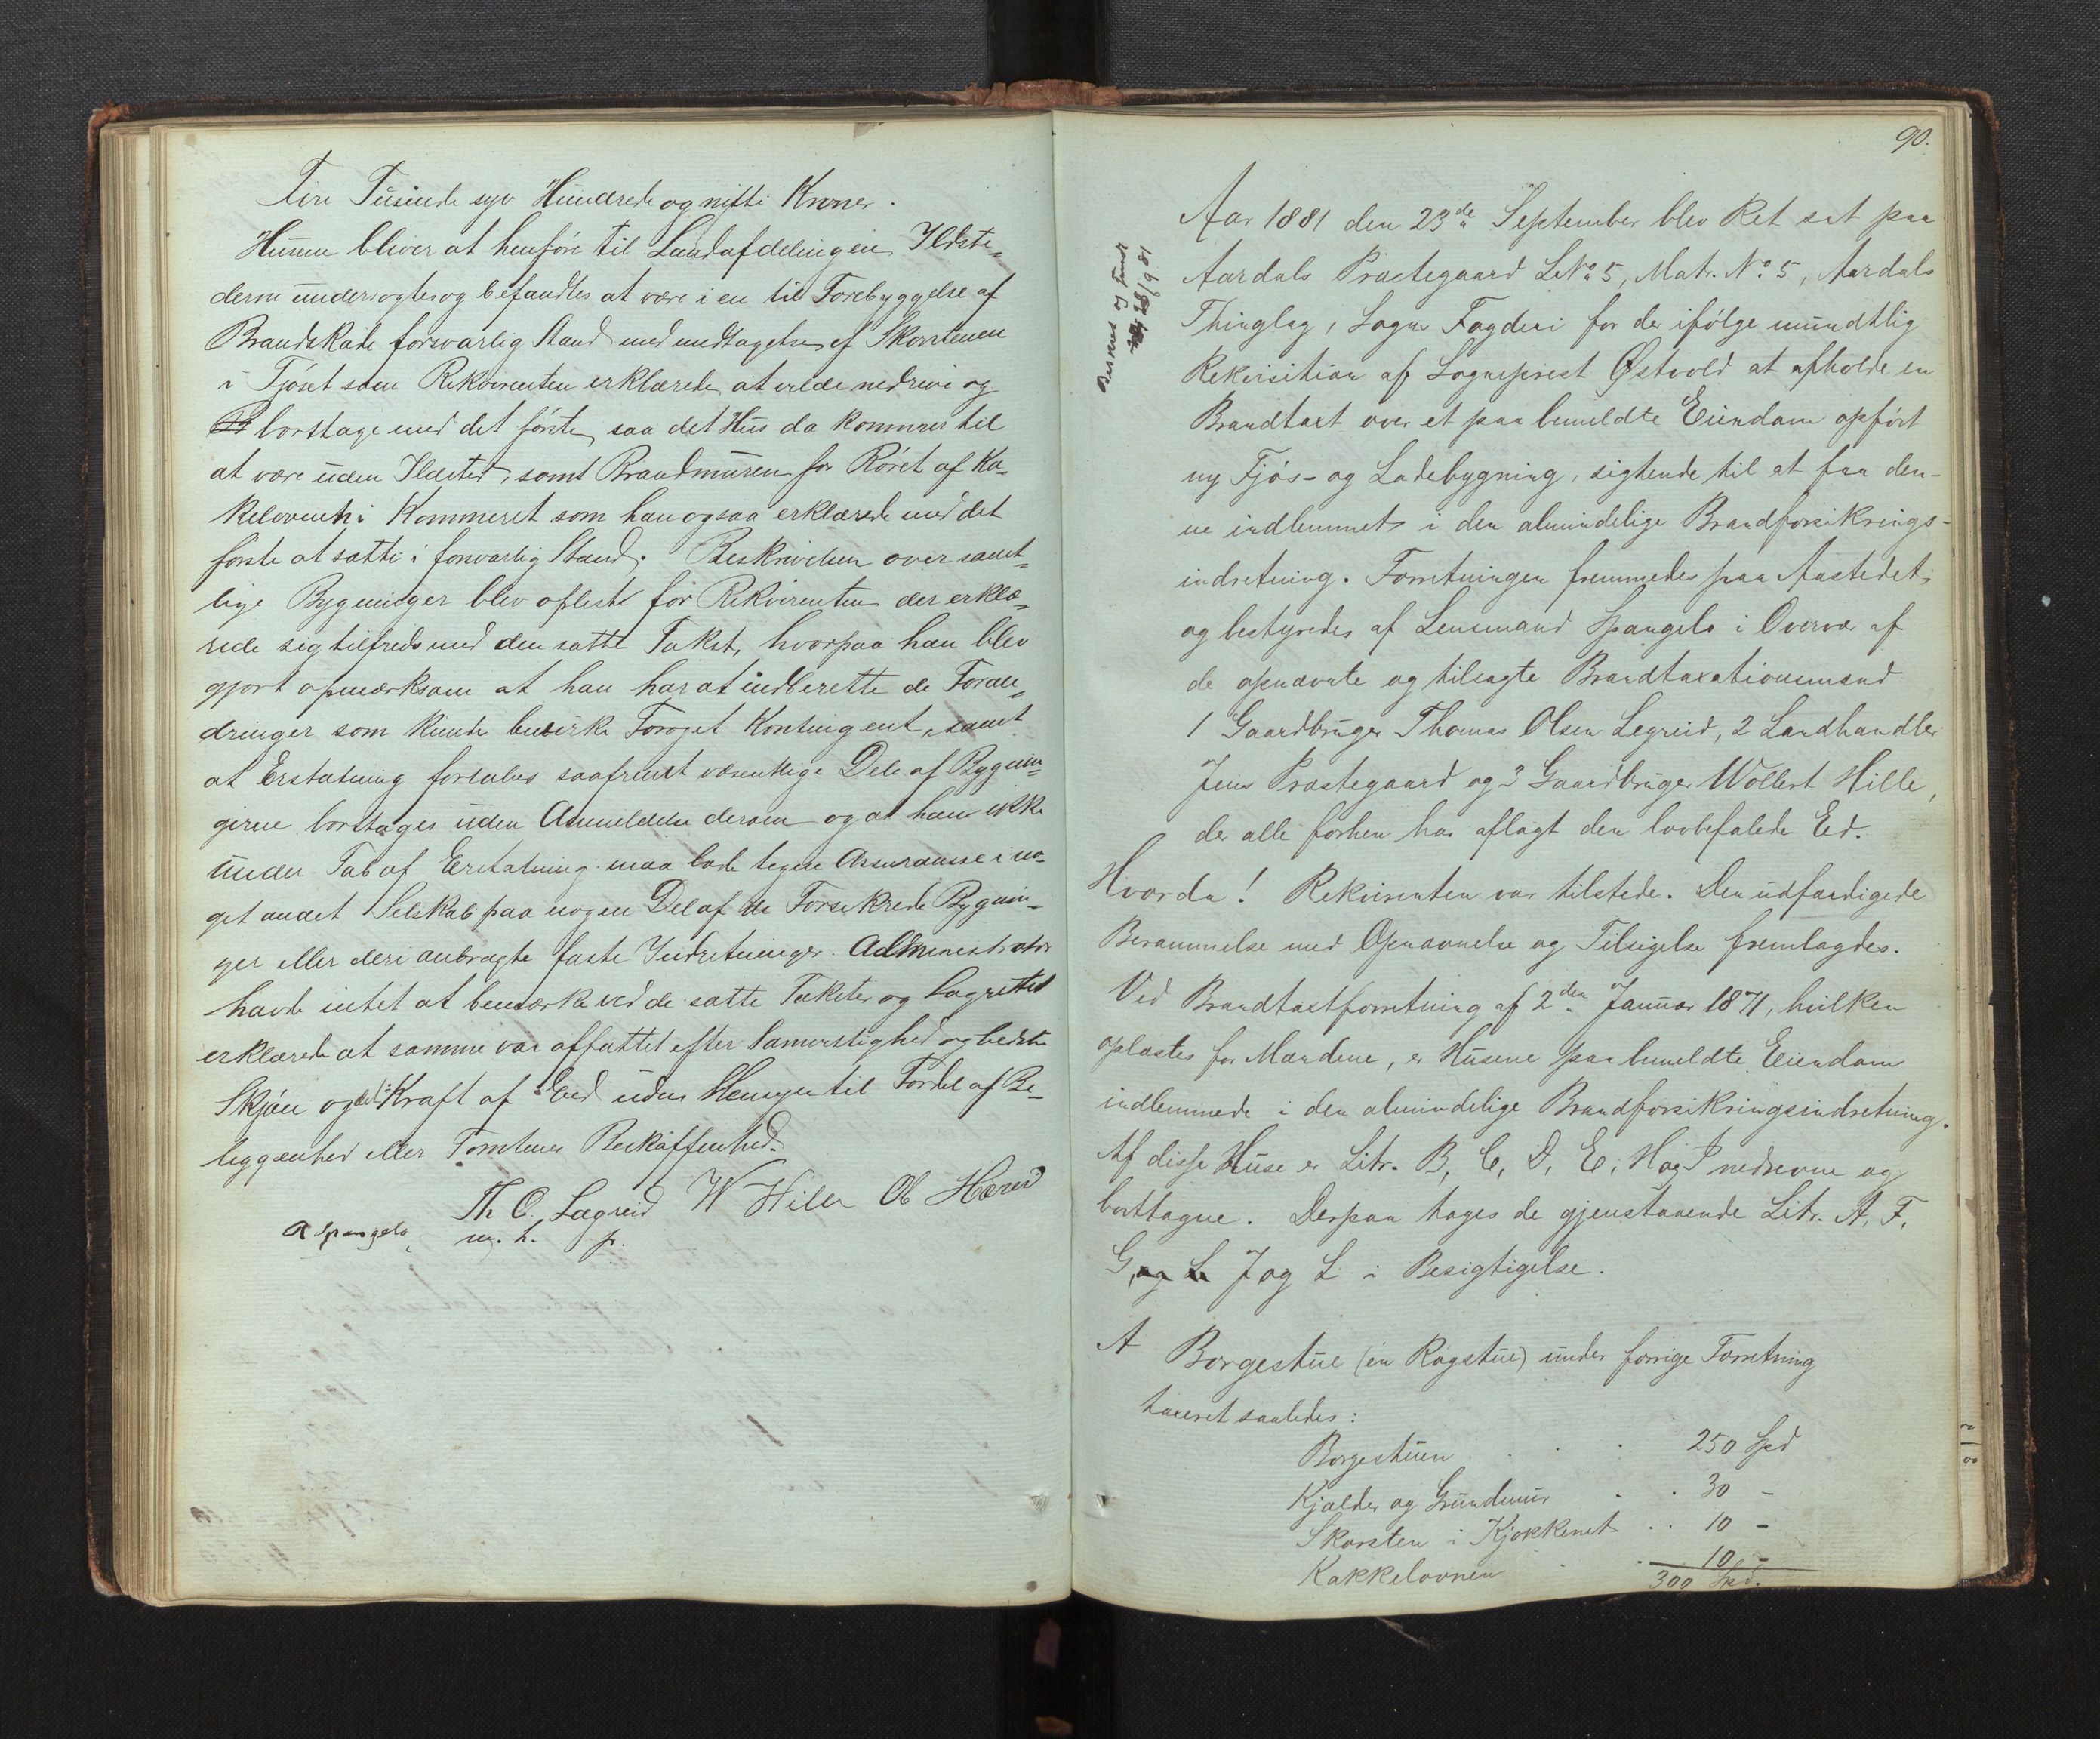 Fire Tusinde syv Hundrede og nitti Kroner.
Husene bliver at henføre til Landafdelingen. Ildste-
derne undersøgtes og befandtes at være i en til Forebyggelse af
Brandskade forsvarlig Stand med undtagelse af Skorstenen
i Fjøset som Rekvirenten erklærede at ville nedrive og
borttage med det første, saa det Hus da kommer til
at være uden Ildsted, samt Brandmuren for Røret af Ka-
kelovnen i Kammeret som han ogsaa erklærede med det
første at sætte i forsvarlig Stand. Beskrivelsen over samt-
lige Bygninger blev oplæst for Rekvirenten der erklæ-
rede sig tilfreds med den satte Takst, hvorpaa han blev
gjort opmærksom at han har at indberette de Foran-
dringer som kunde bevirke Forøget Kontingent, samt
at Erstatning fortabes saafremt væsentlige Dele af Bygnin-
gerne borttages uden Anmeldelse derom og at han ikke
under Tab af Erstatning maa lade tegne Assuranse i no-
get andet Selskab paa nogen Del af de Forsikrede Bygnin-
ger eller deri anbragte faste Indretninger. Administrator
havde intet at bemærke ved de satte Takster og Lagrettet
erklærede at samme var affattet efter Samvittighed og bedste
Skjøn og i Kraft af Eed uden Hensyn til Fordel af Be-
liggenhed eller Tomtenes Beskaffenhed.
Th O. Lægreid W Hille Ob Hæreid
A Spangelo m. h. p.
90.
Beskrevet og sendt
28/9 81
Aar 1881 den 23de September blev Ret sat paa
Aardals Præstegaard LNo 5, Matr. No 5, Aardals
Thinglag, Sogns Fogderi for der ifølge mundtlig
Rekvisition af Sogneprest Østvold at afholde en
Brandtaxt over et paa bemeldte Eiendom opført
ny Fjøs- og Ladebygning, sigtende til at faa den-
ne indlemmet i den almindelige Brandforsikrings-
indretning. Forretningen fremmedes paa Aastedet
og bestyredes af Lensmand Spangelo i Overvær af
de opnævnte og tilsagte Brandtaxationsmænd
1 Gaardbruger Thomas Olsen Legreid, 2 Landhandler
Jens Præstegaard og 3 Gaardbruger Wollert Hille,
der alle forhen har aflagt den lovbefalede Eed.
Hvorda! Rekvirenten var tilstede. Den udfærdigede
Berammelse med Opnævnelse og Tilsigelse fremlagdes.
Ved Brandtaxtforretning af 2den Januar 1871, hvilken
oplæstes for Mændene, er Husene paa bemeldte Eiendom
indlemmede i den almindelige Brandforsikringsindretning.
Af disse Huse er Litr. B, C, D, E, H og I nedrevne og
borttagne. Derpaa toges de gjenstaaende Litr. A, F,
G, og L J og L i Besigtigelse.
A Borgestue (en Røgstue) under forrige Forretning
taxeret saaledes:
Borgestuen . . 250 Spd
Kjælder og Grundmur . . 30 -
Skorsten i Kjøkkenet . . 10 -
Kakkelovnen . . 10 -
300 Spd.